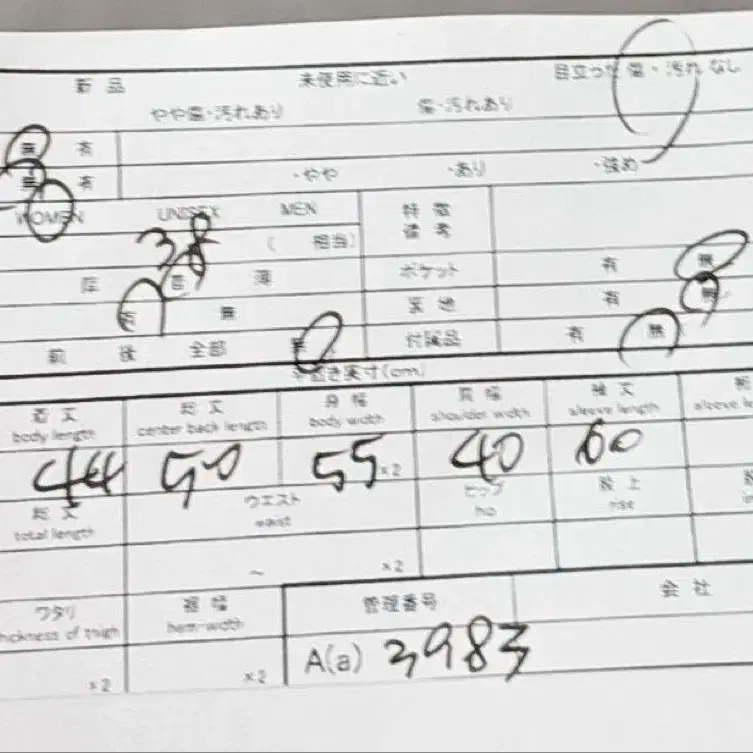 新品 未使用に近い 目立った傷・汚れなし
やや傷・汚れあり 傷・汚れあり
無 有
無 有 ・やや ・あり ・強め
WOMEN UNISEX MEN 特徴
備考
38 ( 相当)
厚 普 薄 ポケット 有 無
有 無 裏地 有 無
前 後 全部 無 付属品 有 無
平置き実寸(cm)
着丈 総丈 身幅 肩幅 袖丈
body length center back length body width shoulder width sleeve length
44 50 55 ×2 40 60
総丈 ウエスト ヒップ 股上
total length waist hip rise
~ ×2
ワタリ 裾幅 管理番号 会社
thickness of thigh hem-width
×2 ×2 A(a) 3983